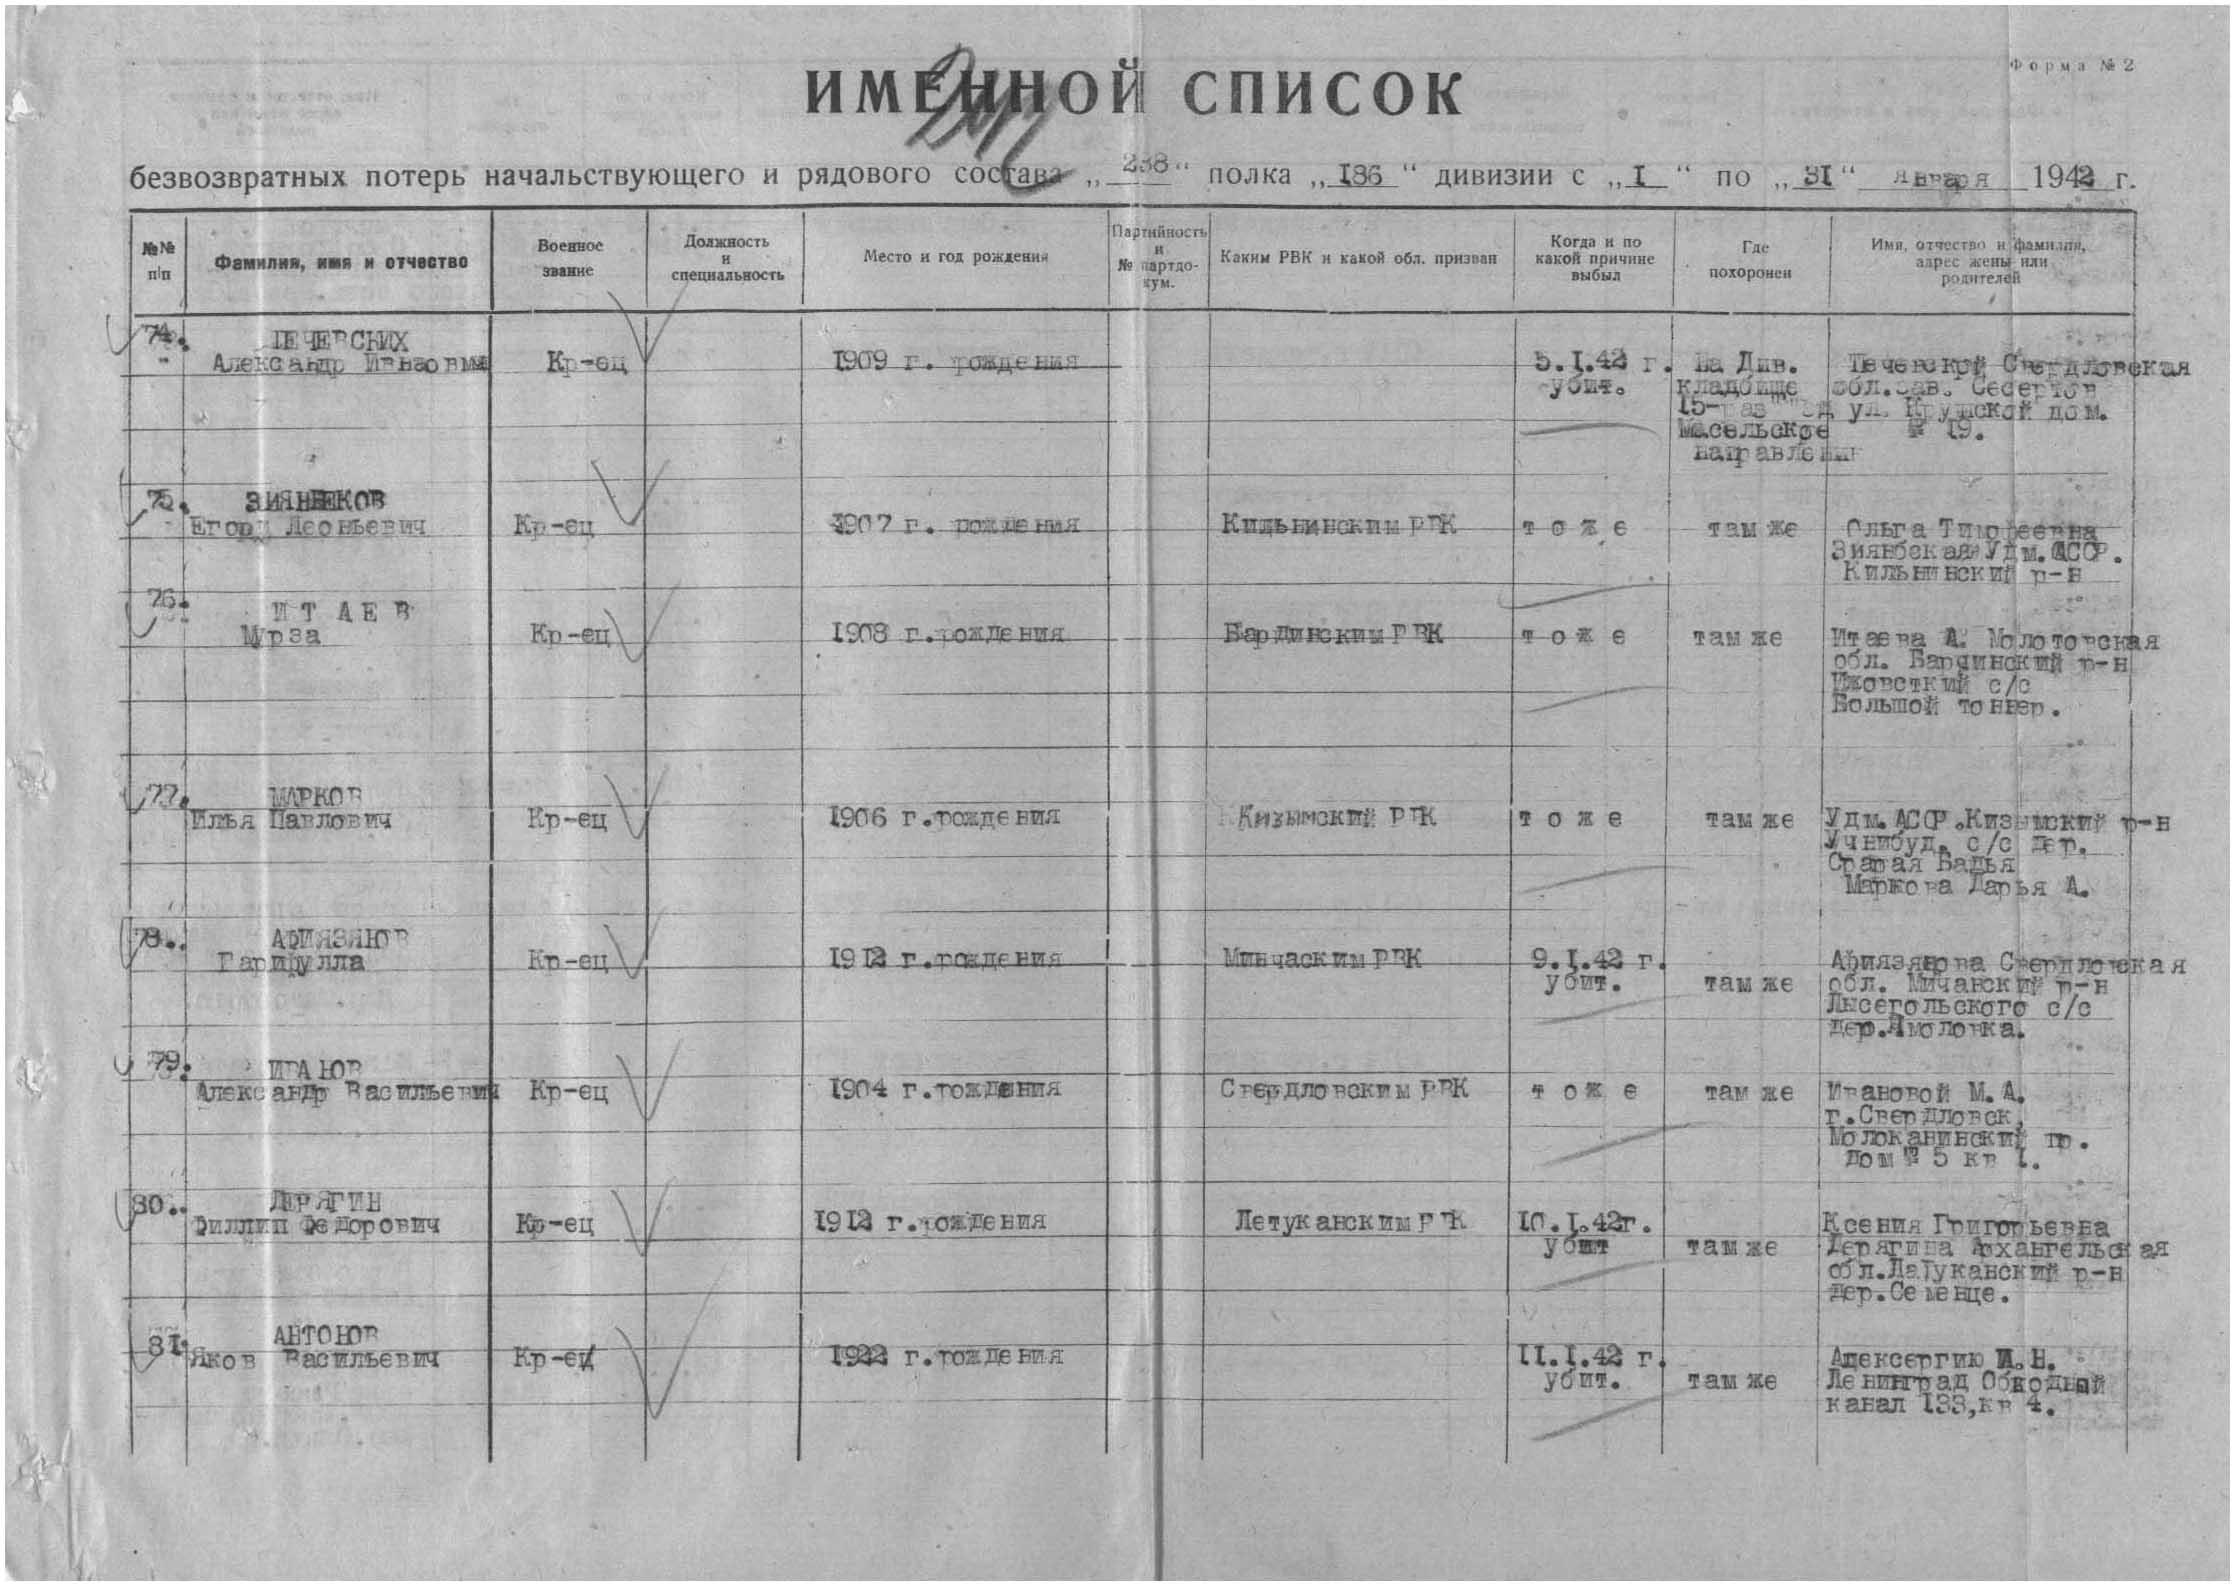 Форма № 2
ИМЕННОЙ СПИСОК
безвозвратных потерь начальствующего и рядового состава „238“ полка „186“ дивизии с „1“ по „31“ января 1942 г.
№№ п/п
Фамилия, имя и отчество
Военное звание
Должность и специальность
Место и год рождения
Партийность и № партдокум.
Каким РВК и какой обл. призван
Когда и по какой причине выбыл
Где похоронен
Имя, отчество и фамилия, адрес жены или родителей
74. ПЕЧЕВСКИХ
Александр Кр-ец 1909 г. рождения 5.I.42 г. На Див. Печевской Свердловская
убит. кладбище обл.
ул. дом.
Масельское № 19.
направлении
75.
Егор Леоньевич Кр-ец 1907 г. рождения Кильнинским РВК т о ж е там же Ольга Тимофеевна
Удм.АССР.
Кильнинский р-н
76. И Т А Е В
Мурза Кр-ец 1908 г.рождения Бардинским РВК т о ж е там же Итаева А. Молотовская
обл. Бардинский р-н
Ижовсткий с/с
Большой
77. МАРКОВ
Илья Павлович Кр-ец 1906 г.рождения Кизымский РВК т о ж е там же Удм.АССР.Кизымский р-н
Учнибуд. с/с дер.
Срарая Бадья
Маркова Дарья А.
78. АФИЯЗЯНОВ
Гарифулла Кр-ец 1912 г.рождения Минчаским РВК 9.I.42 г. Афиязянова Свердловская
убит. там же обл. Мичанский р-н
Лысегольского с/с
дер.Ямоловка.
79. ИВАНОВ
Александр Васильевич Кр-ец 1904 г.рождения Свердловским РВК т о ж е там же Ивановой М.А.
г.Свердловск,
Молоканинский пр.
дом № 5 кв 1.
80. ДЕРЯГИН
Филлип Федорович Кр-ец 1912 г.рождения Летуканским РВК 10.I.42г. Ксения Григорьевна
убит там же Дерягина Архангельская
обл.Латуканский р-н
дер.Семенце.
81. АНТОНОВ
Яков Васильевич Кр-ец 1922 г.рождения 11.I.42 г. Алексергию
убит. там же Ленинград Обводный
канал 133,кв 4.